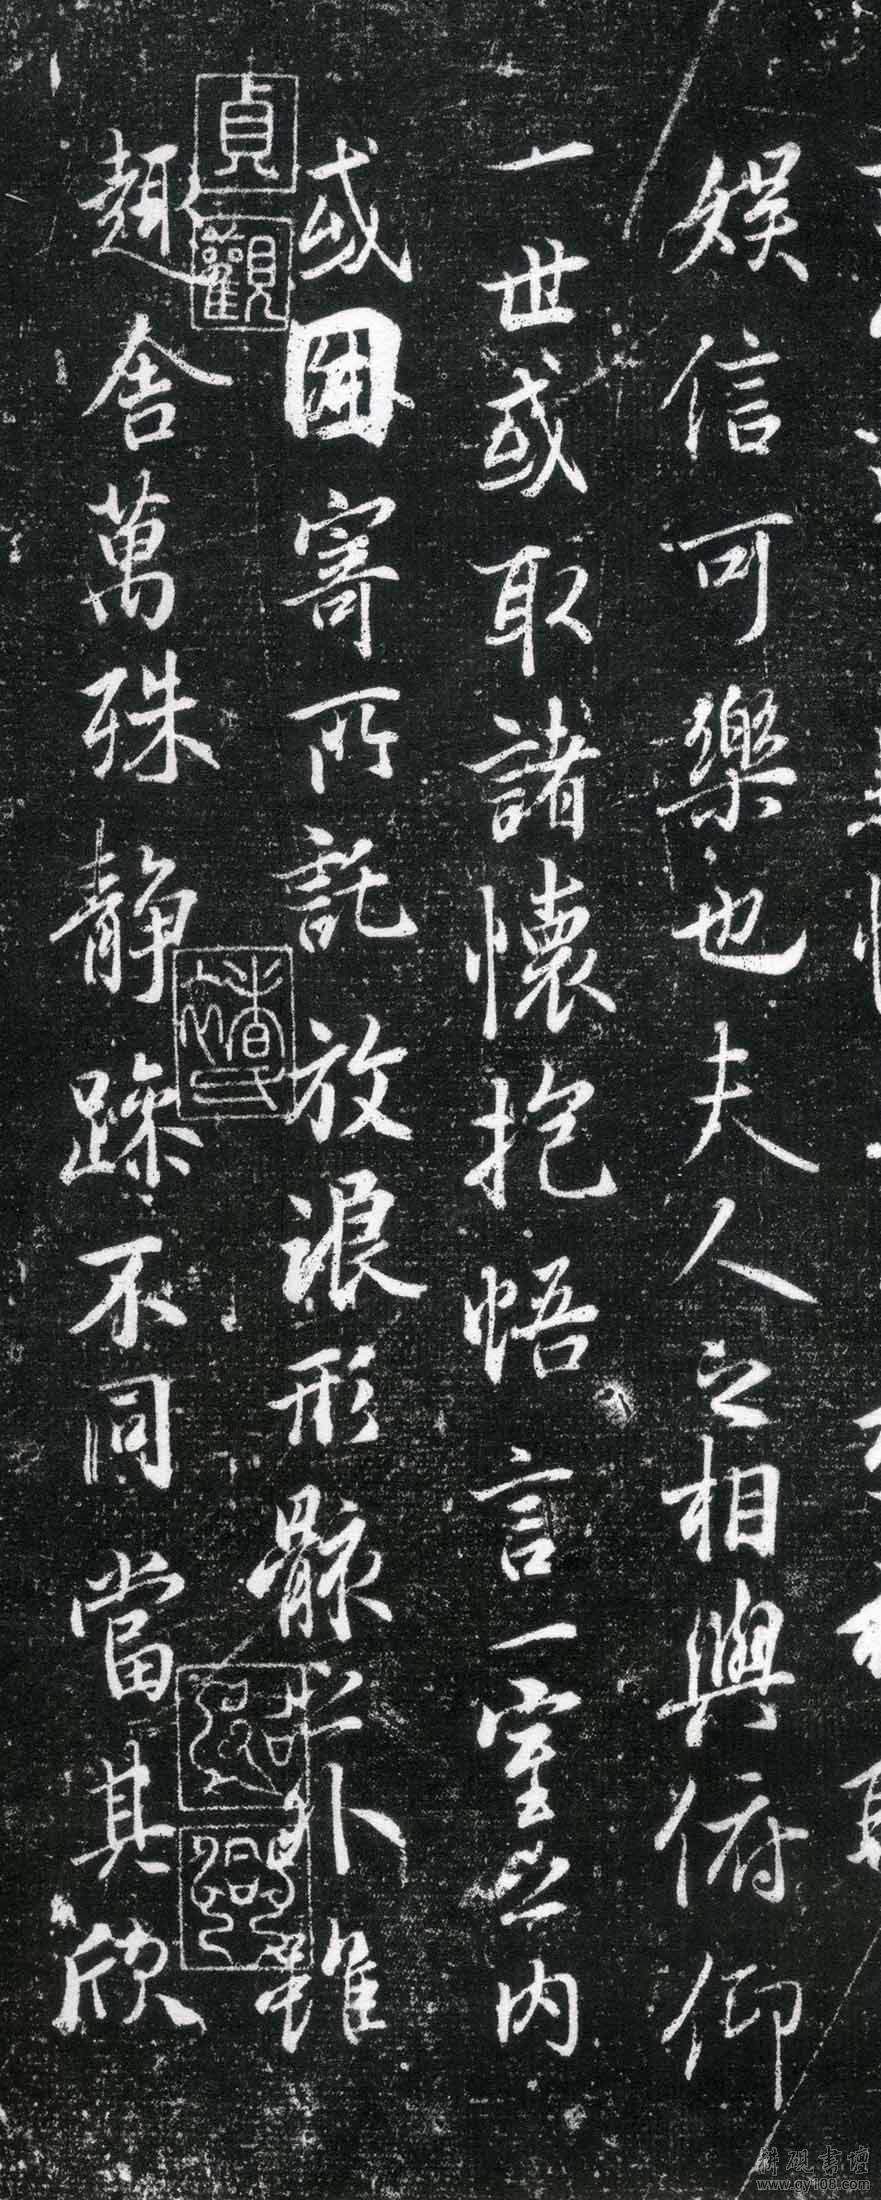 娛信可樂也夫人之相與俯仰
一世或取諸懷抱悟言一室之內
或因寄所託放浪形骸之外雖
趣舍萬殊靜躁不同當其欣
貞觀
耕硯書壇
www.qy108.com